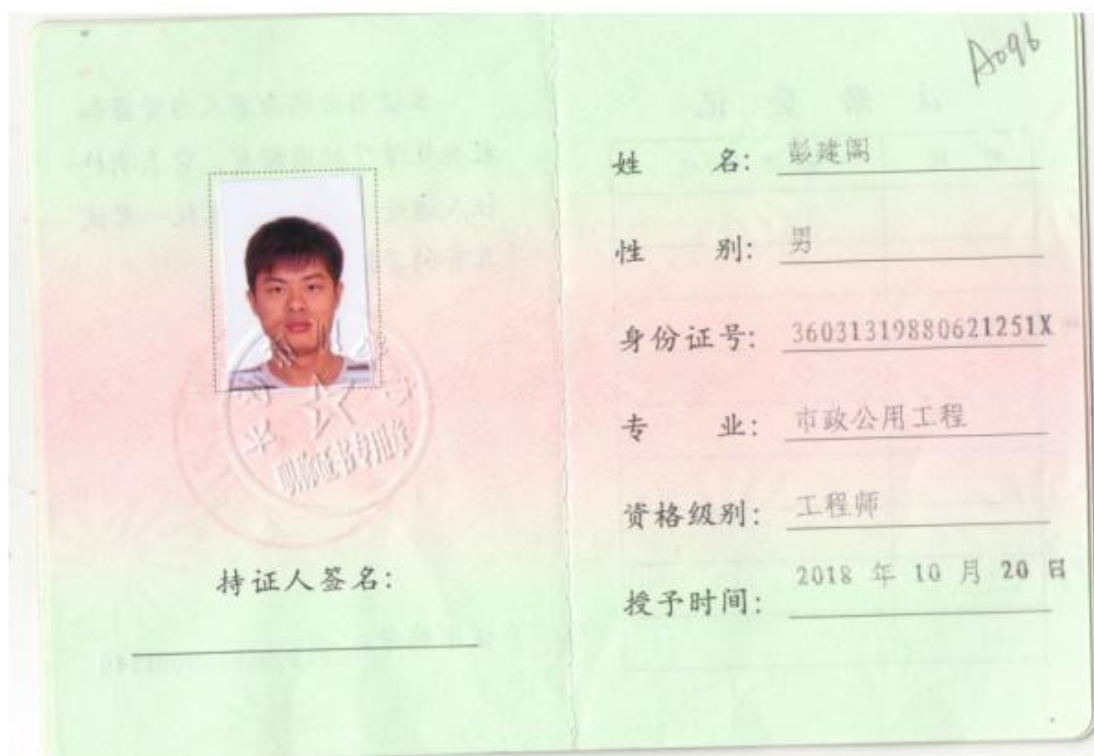 A096
姓 名: 彭建阁
性 别: 男
身份证号: 36031319880621251X
专 业: 市政公用工程
资格级别: 工程师
授予时间: 2018 年 10 月 20 日
职称证书专用章
持证人签名: